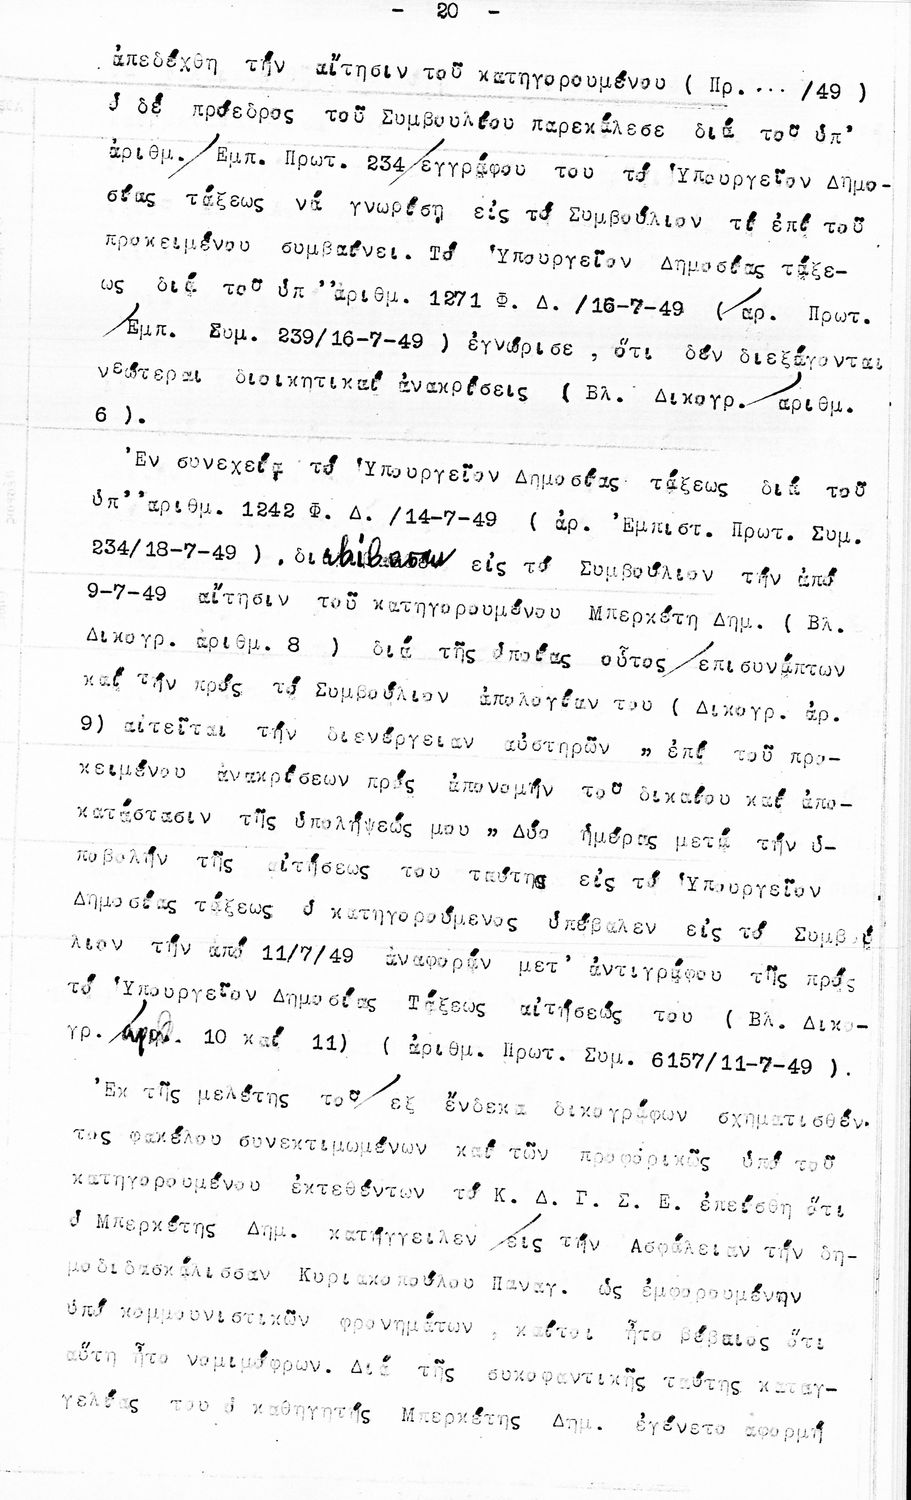 - 20 -
ἀπεδέχθη τήν αἴτησιν τοῦ κατηγορουμένου ( Πρ.... /49 )
ὁ δέ πρόεδρος τοῦ Συμβουλίου παρεκάλεσε διά τοῦ ὑπ'
ἀριθμ./ Εμπ. Πρωτ. 234/εγγράφου του τό Ὑπουργεῖον Δημο-
σίας τάξεως νά γνωρίση εἰς τό Συμβούλιον τί ἐπί τοῦ
προκειμένου συμβαίνει. Τό Ὑπουργεῖον Δημοσίας τάξε-
ως διά τοῦ ὑπ ''ἀριθμ. 1271 Φ. Δ. /16-7-49 ( αρ. Πρωτ.
Εμπ. Συμ. 239/16-7-49 ) ἐγνώρισε , ὅτι δέν διεξάγονται
νεώτεραι διοικητικαί ἀνακρίσεις ( Βλ. Δικογρ. αριθμ.
6 ).
Ἐν συνεχείᾳ τό Ὑπουργεῖον Δημοσίας τάξεως διά τοῦ
ὑπ' 'αριθμ. 1242 Φ. Δ. /14-7-49 ( ἀρ. Ἐμπιστ. Πρωτ. Συμ.
234/18-7-49 ) , διαβιβάζει εἰς τό Συμβούλιον τήν ἀπό
9-7-49 αἴτησιν τοῦ κατηγορουμένου Μπερκέτη Δημ. ( Βλ.
Δικογρ. ἀριθμ. 8 ) διά τῆς ὁποίας οὗτος επισυνάπτων
καί τήν πρός τό Συμβούλιον ἀπολογίαν του ( Δικογρ. ἀρ.
9) αἰτεῖται τήν διενέργειαν αὐστηρῶν " ἐπί τοῦ προ-
κειμένου ἀνακρίσεων πρός ἀπονομήν τοῦ δικαίου καί ἀπο-
κατάστασιν τῆς ὑπολήψεώς μου " Δύο ἡμέρας μετά τήν ὑ-
ποβολήν τῆς αἰτήσεως του ταύτης εἰς τό Ὑπουργεῖον
Δημοσίας τάξεως ὁ κατηγορούμενος ὑπέβαλεν εἰς τό Συμβού
λιον τήν ἀπό 11/7/49 ἀναφοράν μετ' ἀντιγράφου τῆς πρός
τό Ὑπουργεῖον Δημοσίας Τάξεως αἰτήσεώς του ( Βλ. Δικο-
γρ. ἀριθ. 10 καί 11) ( ἀριθμ. Πρωτ. Συμ. 6157/11-7-49 ).
Ἐκ τῆς μελέτης τοῦ εξ ἕνδεκα δικογράφων σχηματισθέν-
τος φακέλου συνεκτιμωμένων καί τῶν προφορικῶς ὑπό τοῦ
κατηγορουμένου ἐκτεθέντων τό Κ. Δ. Γ. Σ. Ε. ἐπείσθη ὅτι
ὁ Μπερκέτης Δημ. κατήγγειλεν εἰς τήν Ασφάλειαν τήν δη-
μοδιδασκάλισσαν Κυριακοπούλου Παναγ. ὡς ἐμφορουμένην
ὑπό κομμουνιστικῶν φρονημάτων , καίτοι ἦτο βέβαιος ὅτι
αὕτη ἦτο νομιμόφρων. Διά τῆς συκοφαντικῆς ταύτης καταγ-
γελίας του ὁ καθηγητής Μπερκέτης Δημ. ἐγένετο ἀφορμή